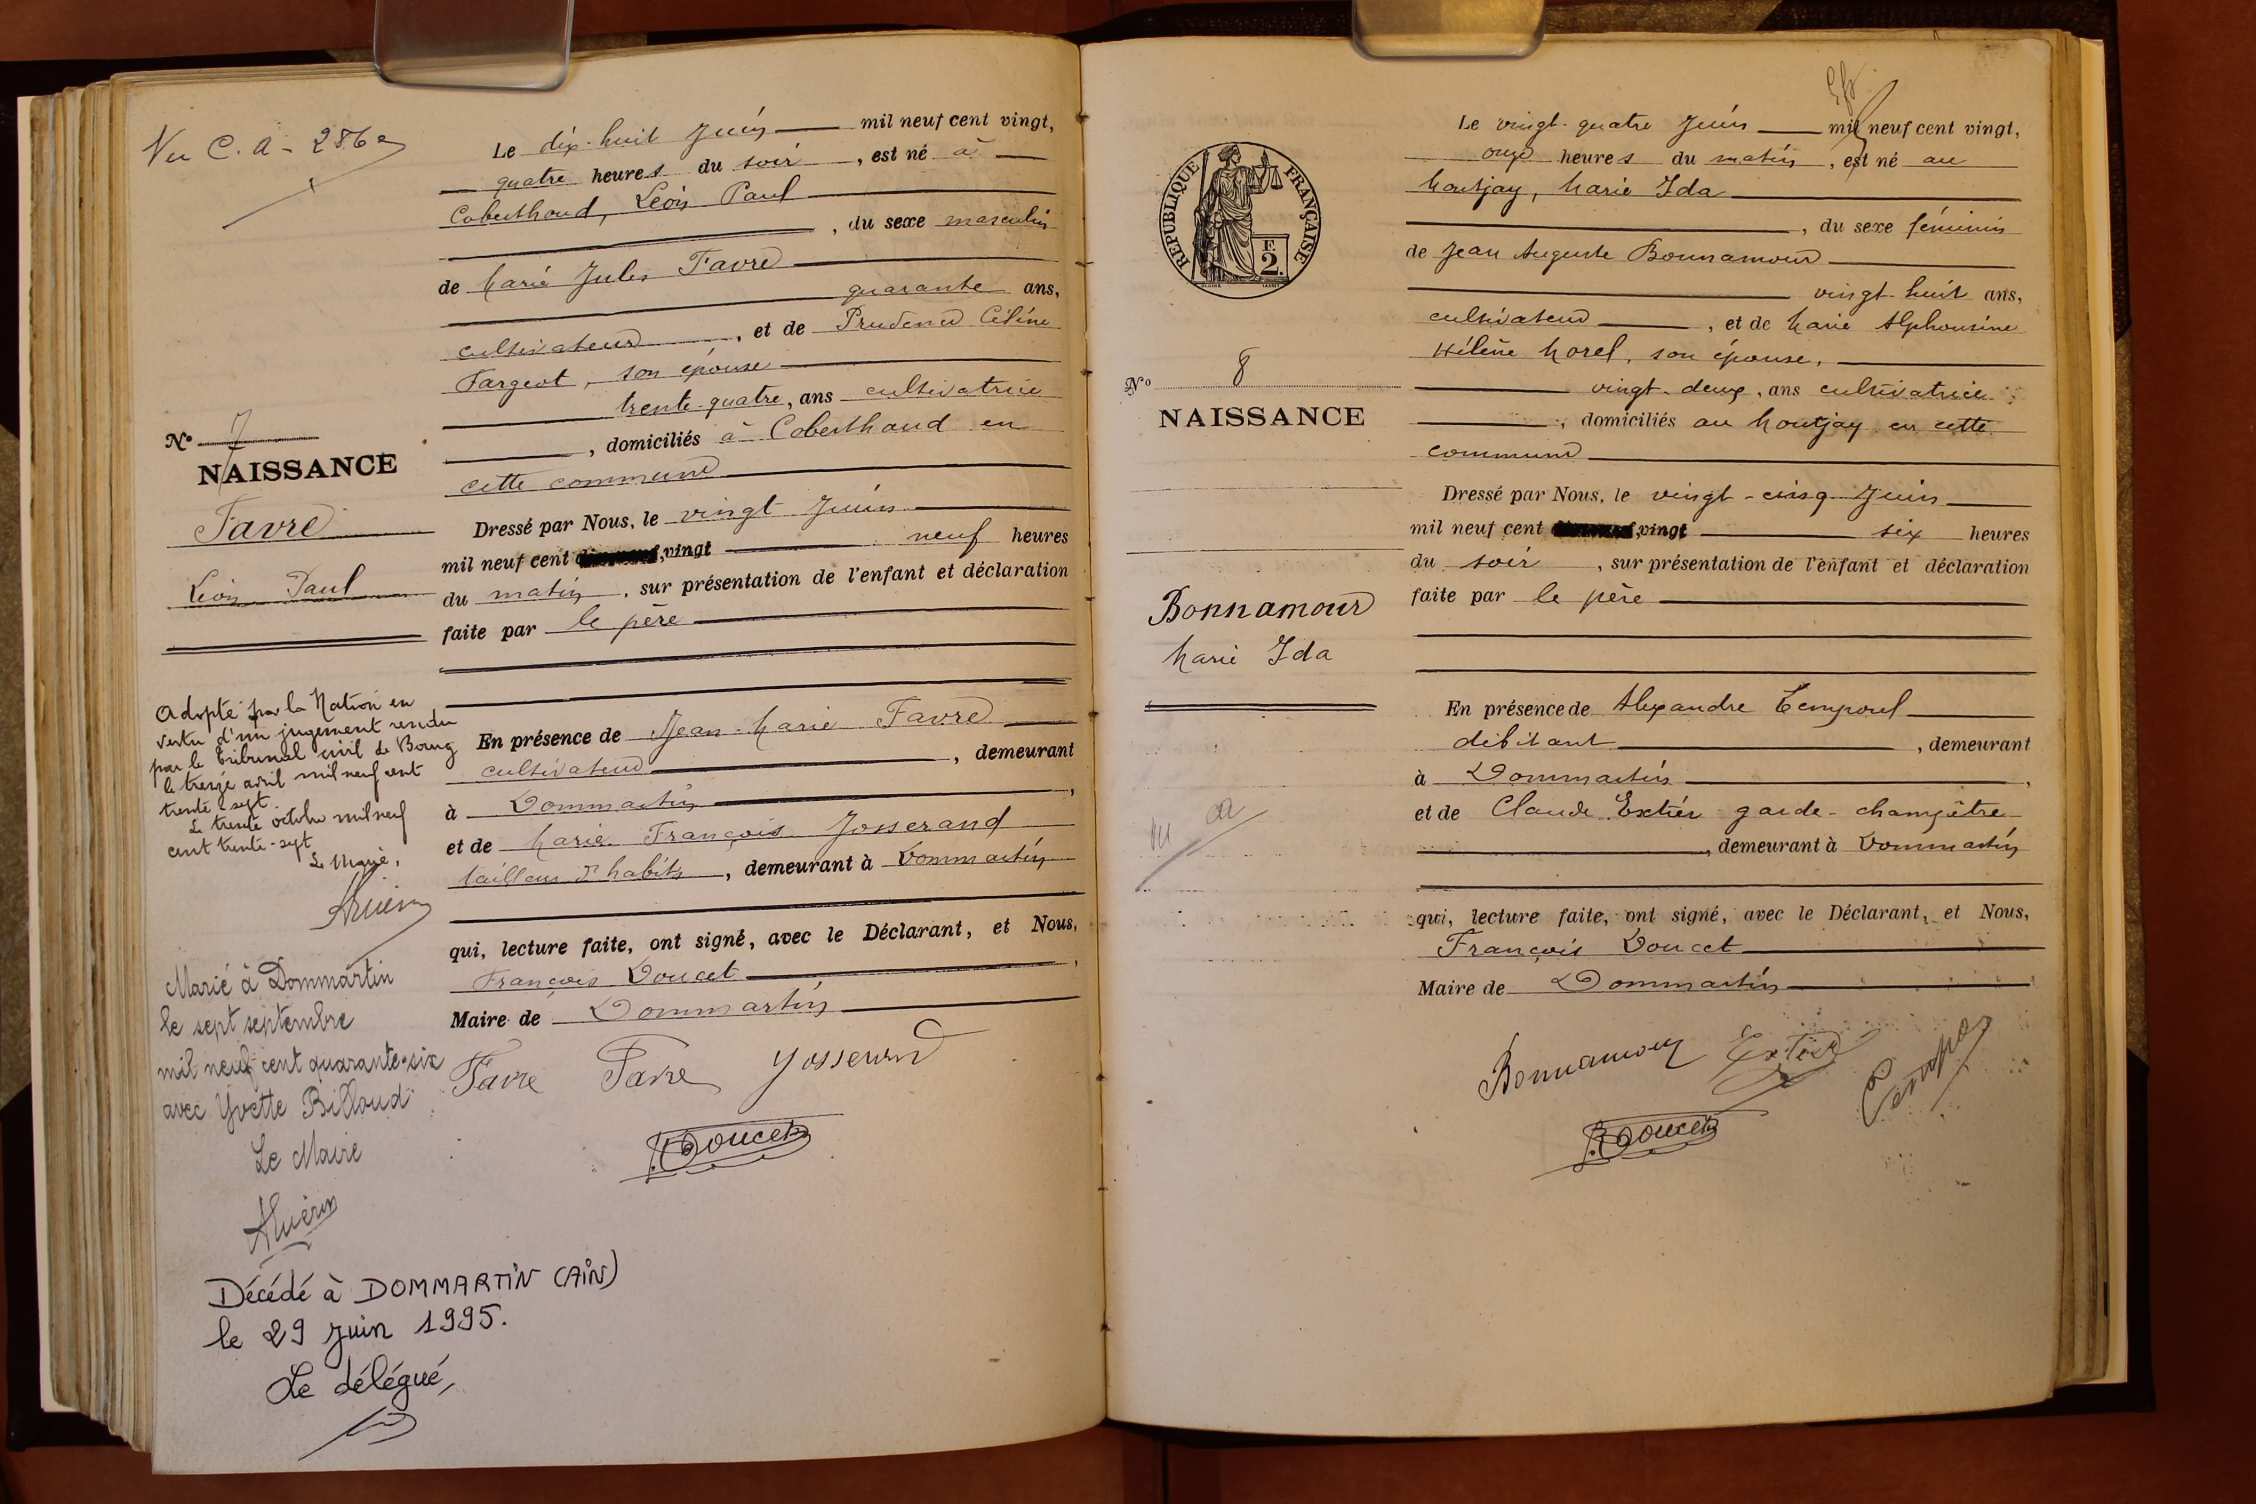 Vu C. A - 2862
Le dix-huit Juin mil neuf cent vingt,
quatre heures du soir, est né à
Coberthoud, Léon Paul
, du sexe masculin
de Marie Jules Favre
quarante ans,
cultivateur, et de Prudence Céline
Fargeot, son épouse
trente-quatre, ans cultivatrice
, domiciliés à Coberthoud en
cette commune
Nº 7
NAISSANCE
Favre
Léon Paul
Dressé par Nous, le vingt Juin
mil neuf cent vingt neuf heures
du matin, sur présentation de l'enfant et déclaration
faite par le père
Adopté par la Nation en
vertu d'un jugement rendu
par le Tribunal civil de Bourg
le treize avril mil neuf cent
trente-sept.
Le trente octobre mil neuf
cent trente-sept
Le Maire,
En présence de Jean-Marie Favre
cultivateur, demeurant
à Dommartin,
et de Marie François Josserand
tailleur d'habits, demeurant à Dommartin
qui, lecture faite, ont signé, avec le Déclarant, et Nous,
François Doucet,
Maire de Dommartin
Favre Favre Josserand
F. Doucet
Marié à Dommartin
le sept septembre
mil neuf cent quarante-six
avec Yvette Billoud
Le Maire
Décédé à DOMMARTIN (AIN)
le 29 Juin 1995.
Le délégué,
RÉPUBLIQUE FRANÇAISE
F.
2.
Nº 8
NAISSANCE
Bonnamour
Marie Ida
Le vingt-quatre Juin mil neuf cent vingt,
onze heures du matin, est né au
Montjay, Marie Ida
, du sexe féminin
de Jean Auguste Bonnamour
vingt-huit ans,
cultivateur, et de Marie Alphonsine
Hélène Morel, son épouse,
vingt-deux, ans cultivatrice
, domiciliés au Montjay en cette
commune
Dressé par Nous, le vingt-cinq Juin
mil neuf cent vingt six heures
du soir, sur présentation de l'enfant et déclaration
faite par le père
En présence de Alexandre Temporel
débitant, demeurant
à Dommartin,
et de Claude Extier garde-champêtre
, demeurant à Dommartin
qui, lecture faite, ont signé, avec le Déclarant, et Nous,
François Doucet
Maire de Dommartin
Bonnamour Extier
F. Doucet